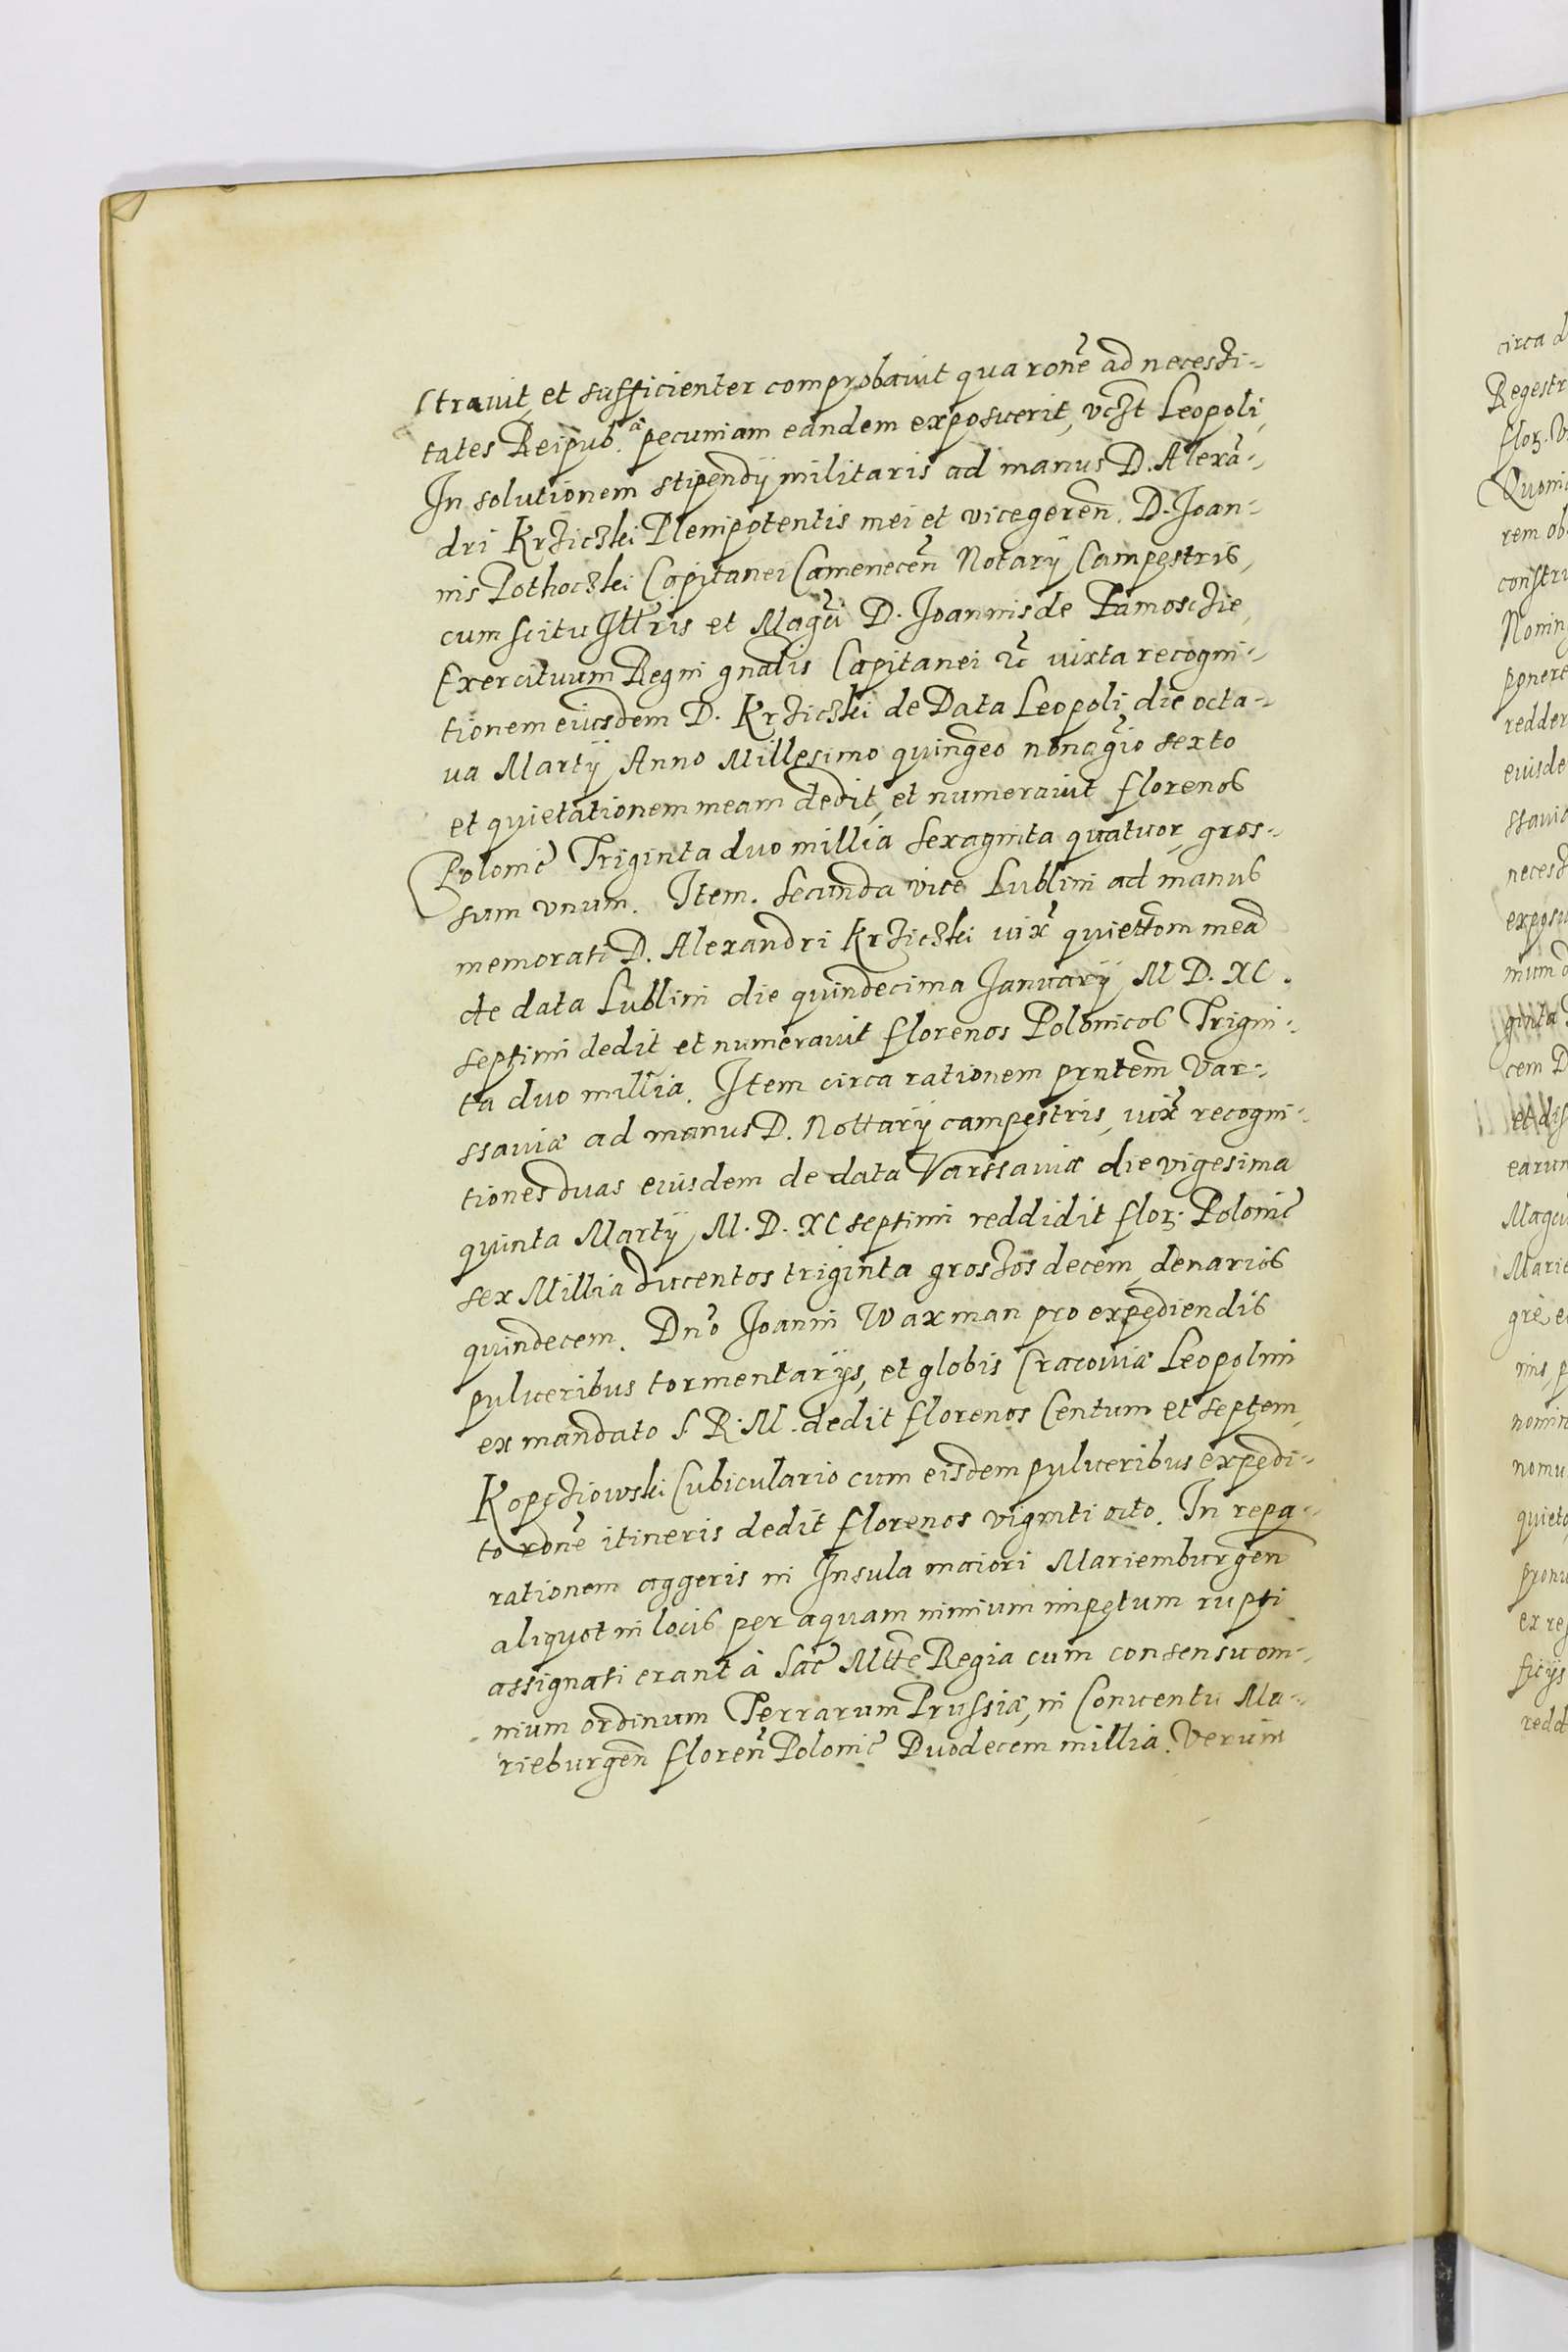 strauit et sufficienter comprobauit qua roñe ad necessi-
tates Reipub. pecuniam eandem exposuerit, vczt Leopoli,
In solutionem stipendÿ militaris ad manus D. Alexã-
dri Krziczki Plenipotentis mei et vicegereñ. D. Ioan-
nis Pothoczki Capitanei Cameneceñ Notarÿ Campestris,
cum scitu Illris et Magci D. Ioannis de Zamosczie,
Exercituum Regni gnalis Capitanei &c iuxta recogni-
tionem eiusdem D. Krziczki de Data Leopoli die octa-
ua Martÿ Anno Millesimo quingeo nonagio sexto
et quietationem meam dedit, et numerauit florenos
Polonic Triginta duo millia sexaginta quatuor, gros-
sum vnum. Item. Secunda vice Lublini ad manus
memorati D. Alexandri Krziczki iux quiettom meã
de data Lublini die quindecima Ianuarÿ M D. XC.
septimi dedit et numerauit florenos Polonicos Trigin-
ta duo millia. Item circa rationem pñtem Var-
ssauiæ ad manus D. Nottarÿ campestris, iux recogni-
tiones duas eiusdem de data Varssauiæ die vigesima
quinta Martÿ M. D. XC septimi reddidit flor. Polonic
sex Millia ducentos triginta grossos decem, denarios
quindecem. Dno Ioanni Waxman pro expediendis
pulueribus tormentarÿs, et globis Cracouiæ Leopolim
ex mandato S. R. M. dedit florenos Centum et septem,
Kopcziowski Cubiculario cum eisdem pulueribus expedi-
to roñe itineris dedit florenos viginti octo. In repa-
rationem aggeris in Insula maiori Mariemburgeñ
aliquot in locis per aquam nimium impetum rupti
assignati erant à Sac Mtte Regia cum consensu om-
nium ordinum Terrarum Prussiæ, in Conuentu Ma-
rieburgeñ floreñ Polonic Duodecem millia. Verum